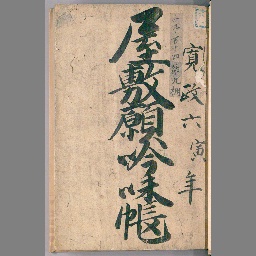 寛政六寅年
屋敷願吟味帳